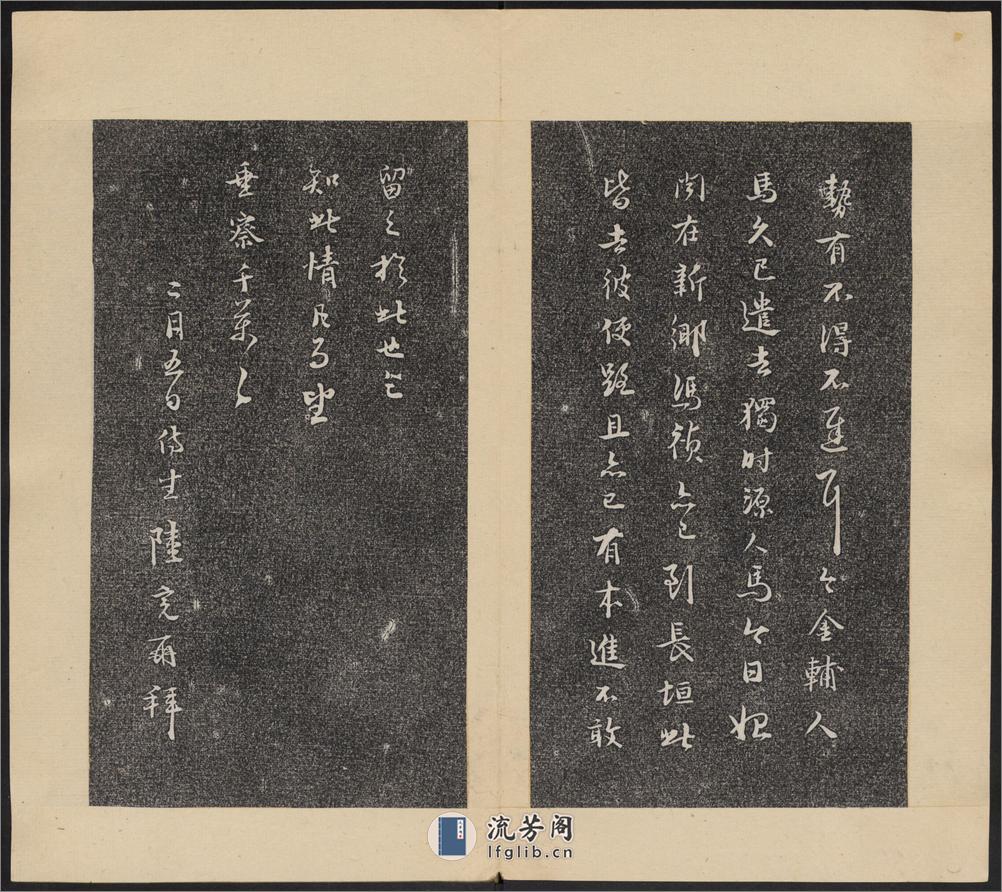 勢有不得不遲耳今金輔人
馬久已遣去獨時源人馬今日始
聞在新鄉馮禎亦已到長垣此
皆去彼便路且亦已有本進不敢
留之於此也乞
知此情凡百望
垂察千萬々
二月五日侍生陸完再拜
流芳阁
lfglib.cn